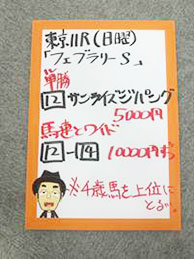 東京11R(日曜)
「フェブラリーS」
単勝
12 サンライズジパング
5000円
馬連とワイド
12-14 10000円ずつ
※4歳馬を上位に
とる…